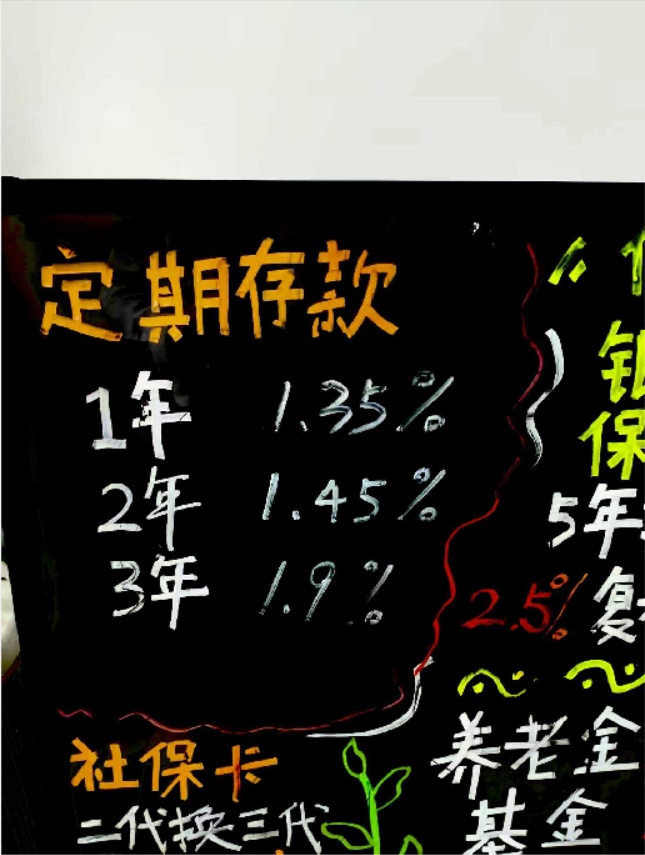 定期存款
1年 1.35%
2年 1.45%
3年 1.9%
社保卡
二代换三代
保
5年
2.5% 复
养老金
基金